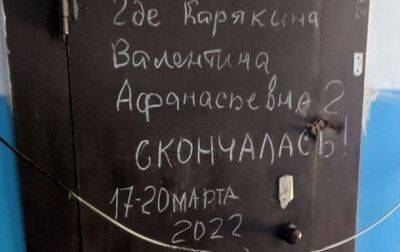 Где Карякина
Валентина
Афанасьевна ?
СКОНЧАЛАСЬ!
17-20 МАРТА
2022